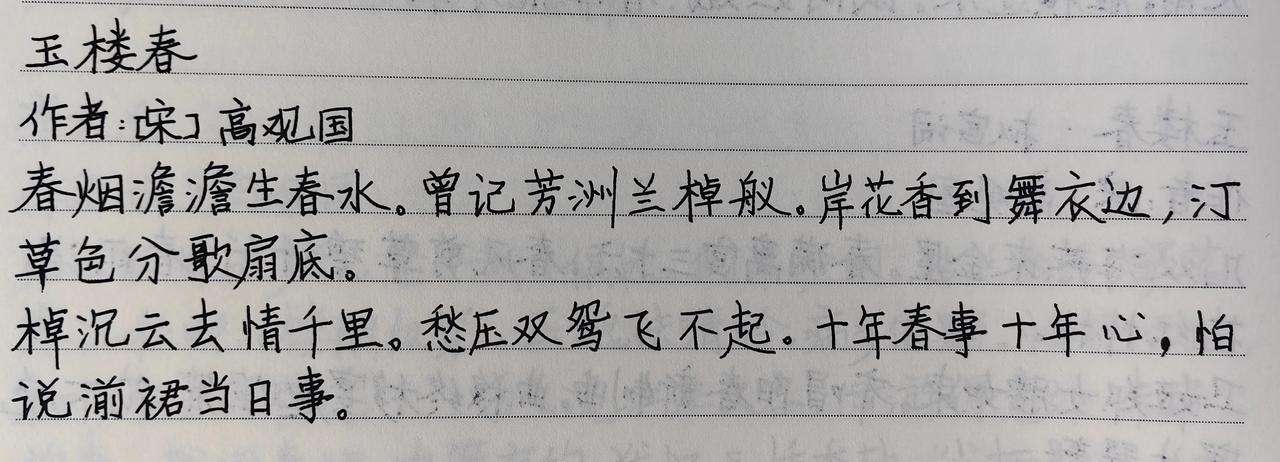 玉楼春
作者:[宋]高观国
春烟澹澹生春水。曾记芳洲兰棹舣。岸花香到舞衣边,汀
草色分歌扇底。
棹沉云去情千里。愁压双鸳飞不起。十年春事十年心,怕
说湔裙当日事。